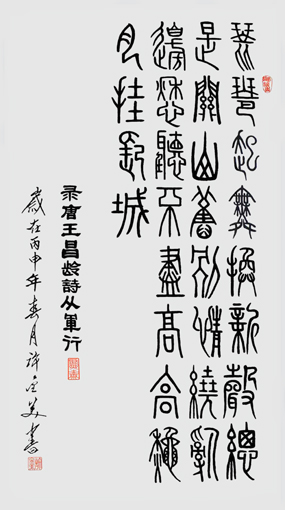 琵琶起舞換新聲總
是關山舊別情繚亂
邊愁聽不盡高高秋
月挂長城
录唐王昌龄詩从軍行
歲在丙申年春月許金美書